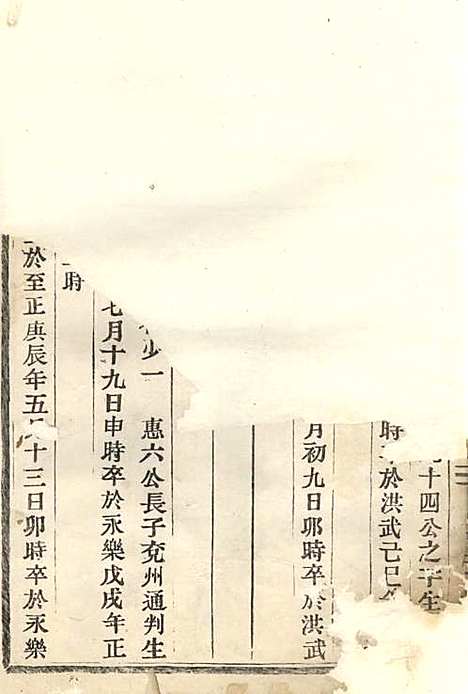 十四公之子生
時卒於洪武己巳
月初九日卯時卒於洪武
少一　惠六公長子兖州通判生
七月十九日申時卒於永樂戊戌年正
時
於至正庚辰年五月十三日卯時卒於永樂